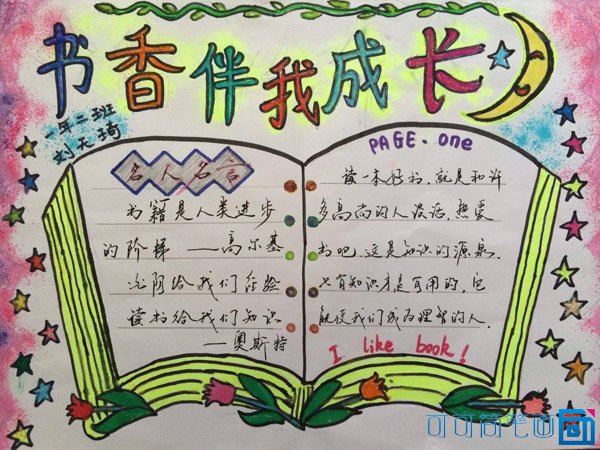 书香伴我成长
一年二班
刘天琦
名人名言
书籍是人类进步
的阶梯 ——高尔基
光阴给我们经验
读书给我们知识
——奥斯特
PAGE.one
读一本好书,就是和许
多高尚的人谈话,热爱
书吧,这是知识的源泉,
只有知识才是有用的,它
能使我们成为理智的人.
I like book!
可可简笔画